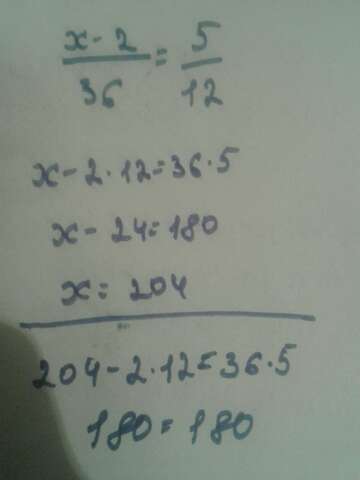 x - 2 / 36 = 5 / 12
x - 2 · 12 = 36 · 5
x - 24 = 180
x = 204
204 - 2 · 12 = 36 · 5
180 = 180